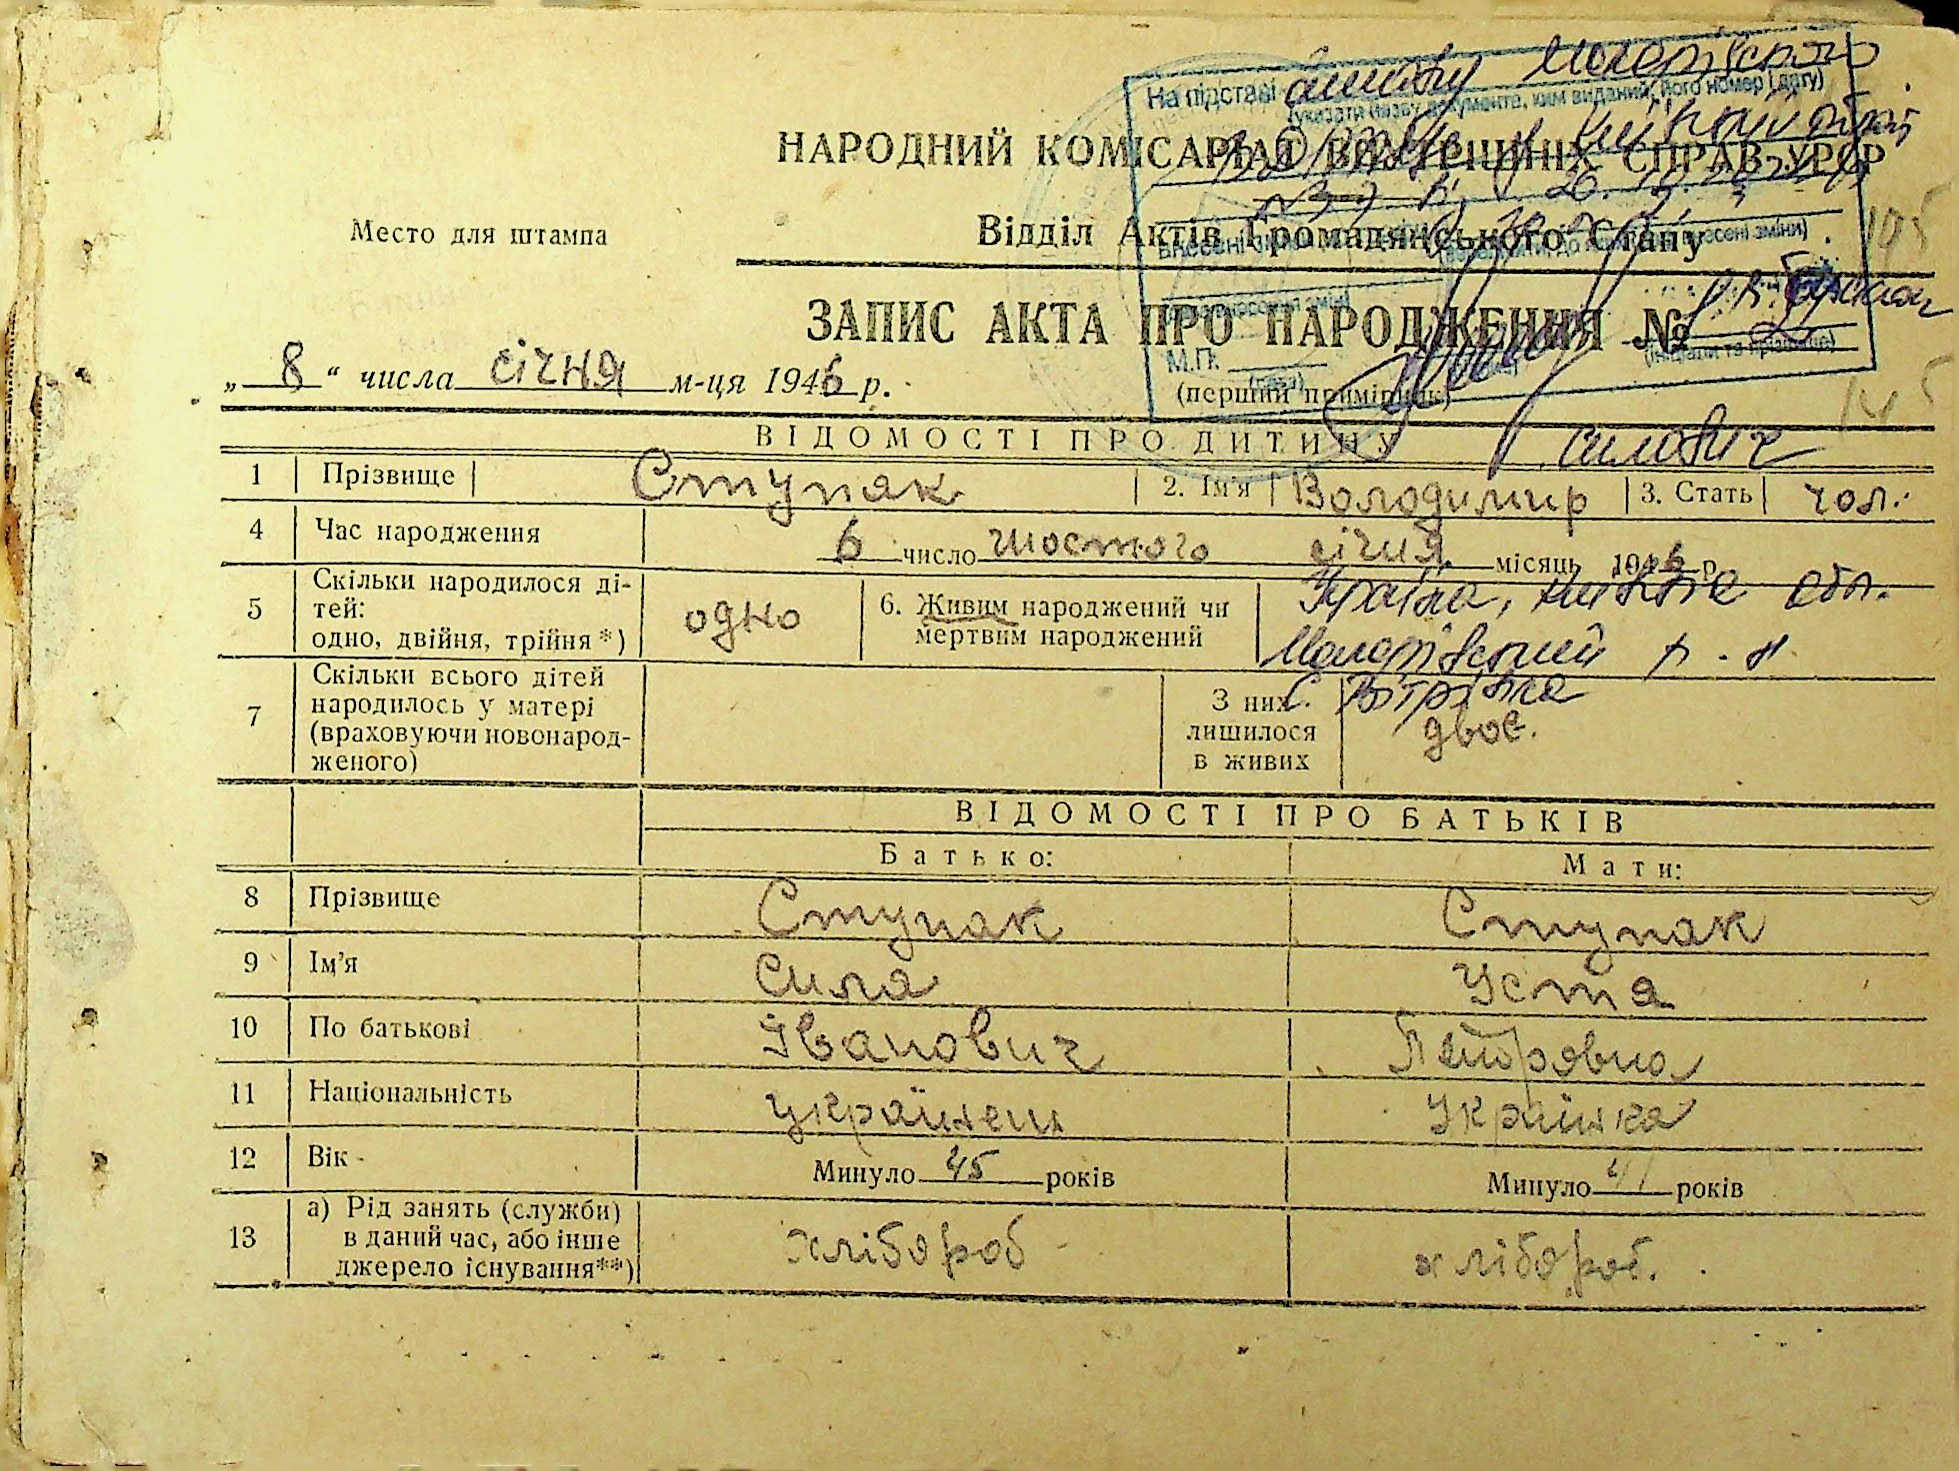 На підставі
(указати назву документа, ким виданий, його номер і дату)
НАРОДНИЙ КОМІСАРІАТ ВНУТРІШНІХ СПРАВ УРСР
Место для штампа
Відділ Актів Громадянського Стану
ЗАПИС АКТА ПРО НАРОДЖЕННЯ №
„ 8 “ числа січня м-ця 1946 р.
М.П.
(перший примірник)
ВІДОМОСТІ ПРО ДИТИНУ
Силович
1 Прізвище Ступак 2. Ім'я Володимир 3. Стать чол.
4 Час народження 6 число шостого січня місяць 1946 р.
5 Скільки народилося ді-
тей:
одно, двійня, трійня*) одно 6. Живим народжений чи
мертвим народжений
Україна, Київська обл.
Макарівський р-н
с. Вітрівка
7 Скільки всього дітей
народилось у матері
(враховуючи новонарод-
женого)
З них
лишилося
в живих двоє.
ВІДОМОСТІ ПРО БАТЬКІВ
Батько: Мати:
8 Прізвище Ступак Ступак
9 Ім'я Сила Устя
10 По батькові Іванович Петровна
11 Національність українец Українка
12 Вік Минуло 45 років Минуло 41 років
13 а) Рід занять (служби)
в даний час, або інше
джерело існування**) хлібороб хлібороб.